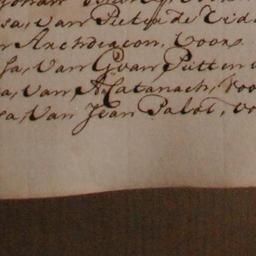 sa, Van Pieter de Vid
r Anchdiacon, Voor
sa, Van G van Putten
a, Van A Catanach, Voo
sa, Van Jean Palot, vo